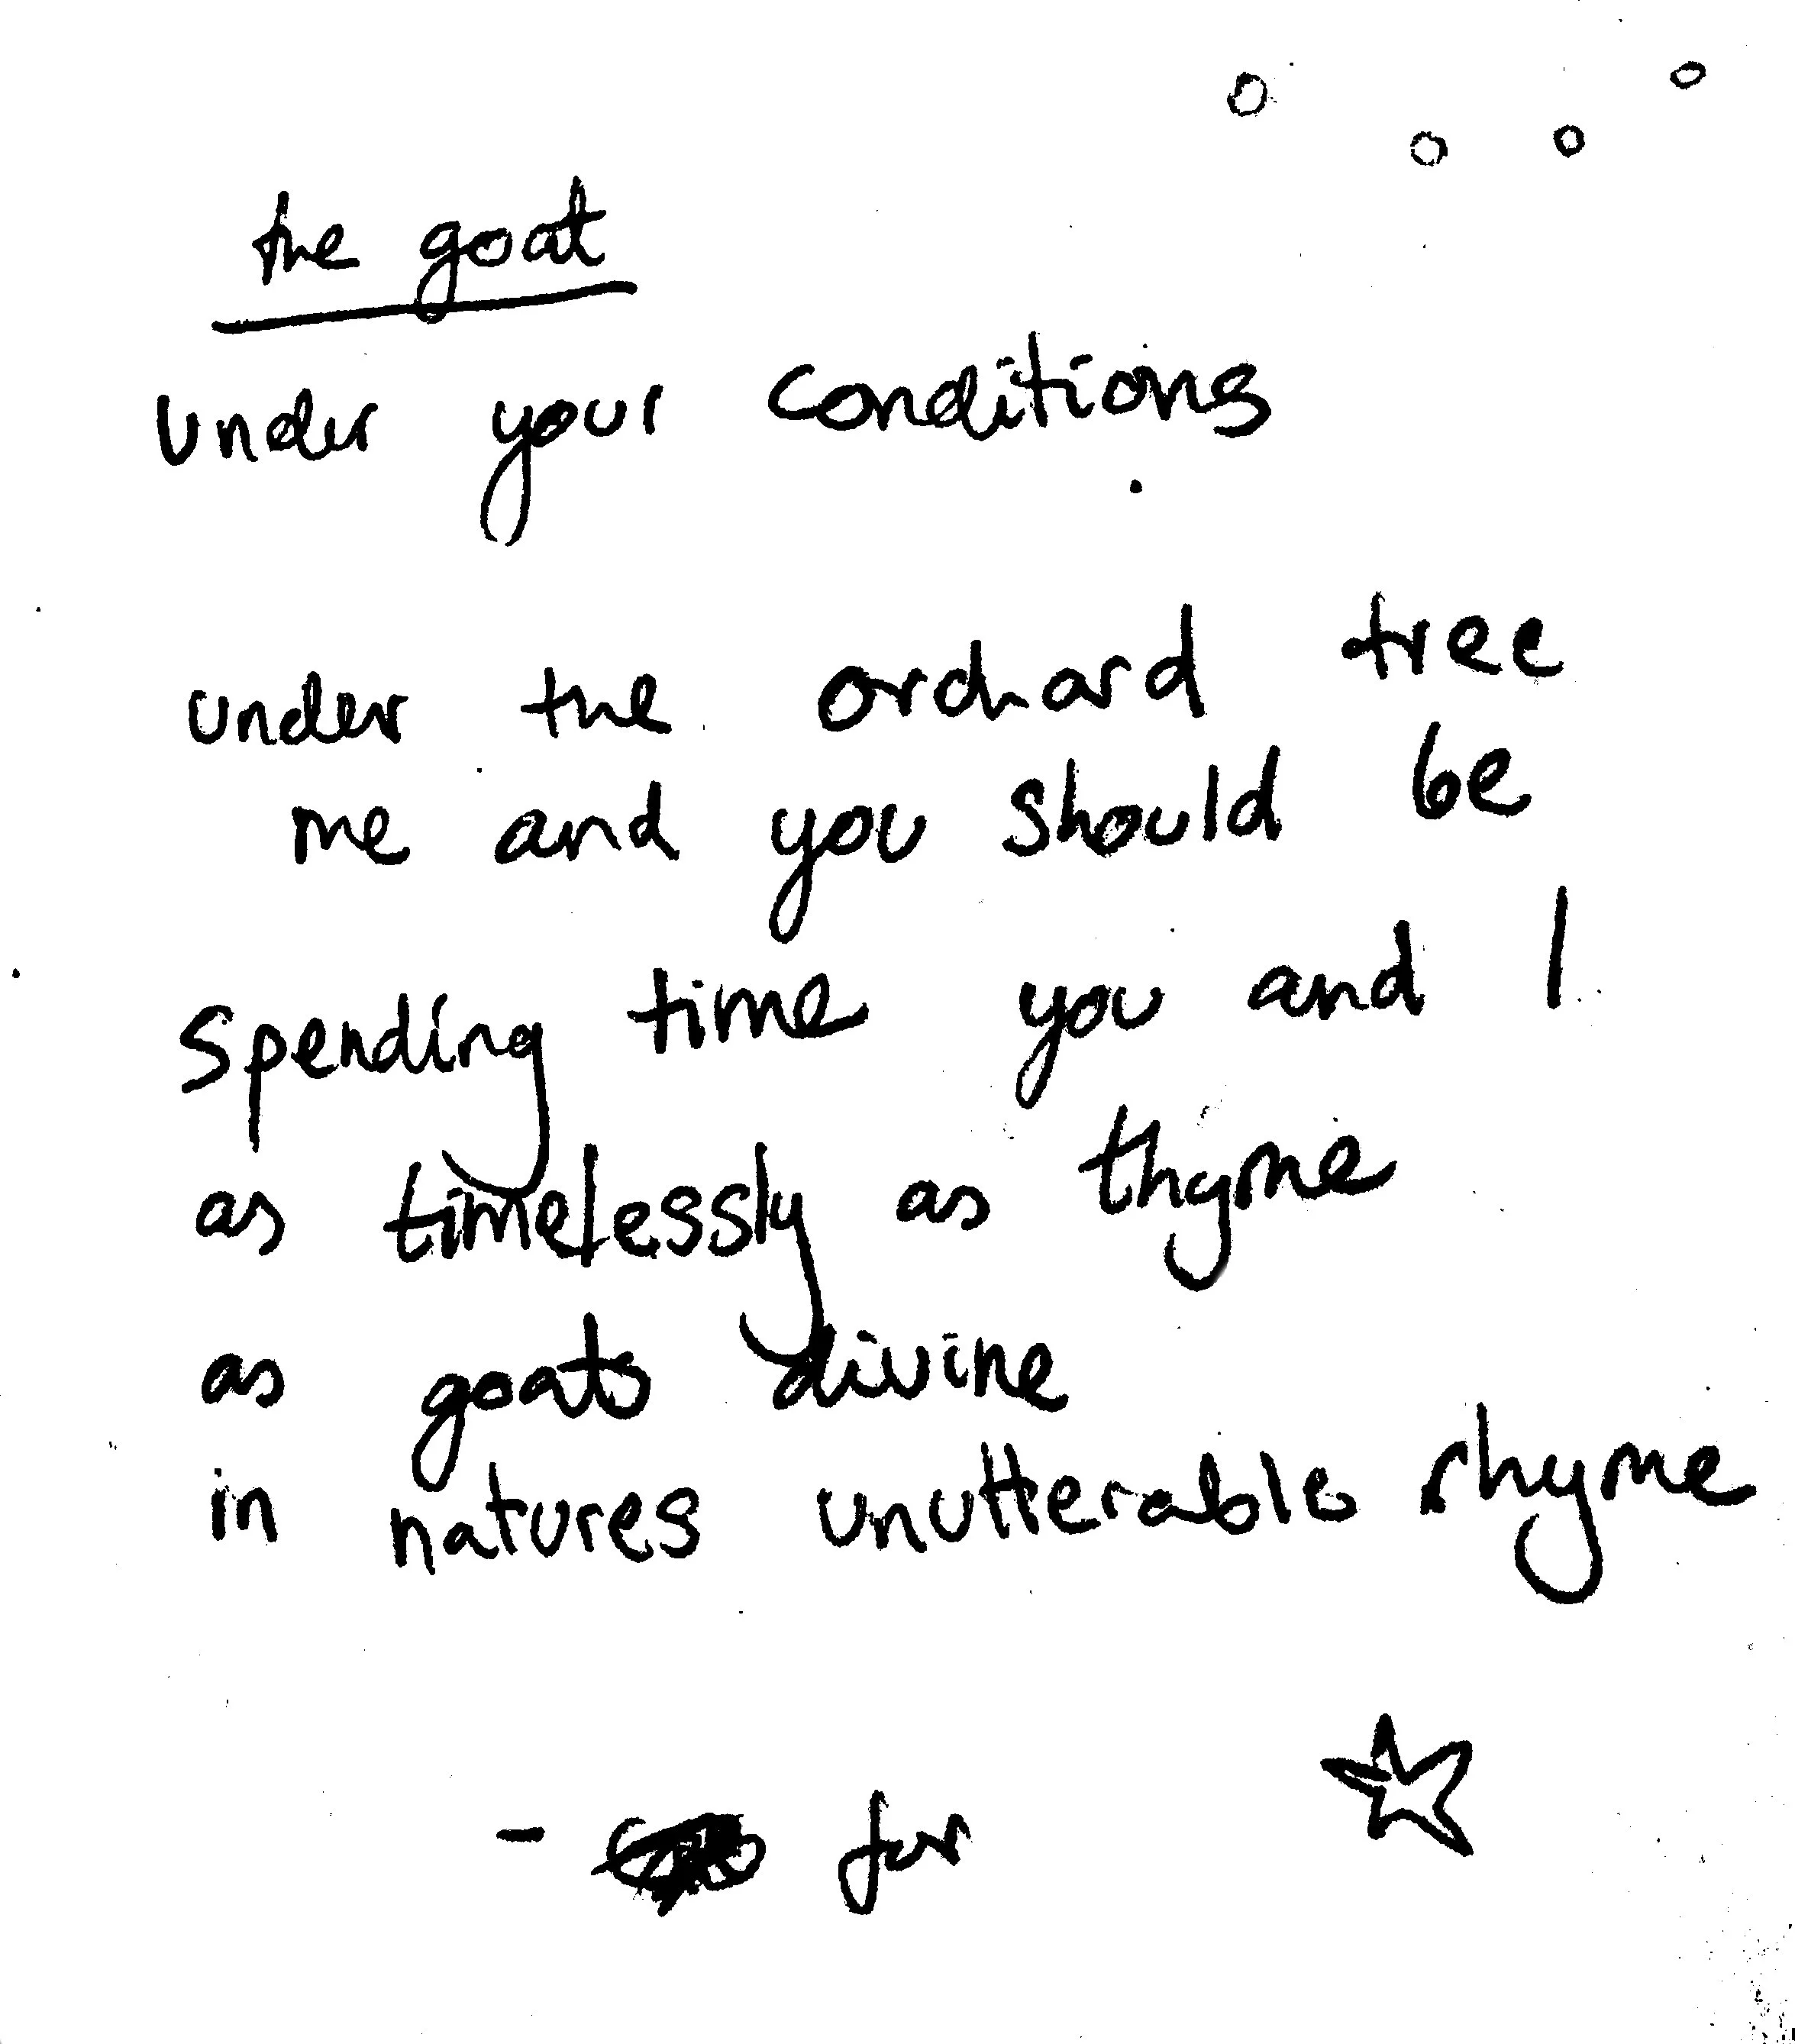 the goat
under your conditions
under the orchard tree
me and you should be
spending time you and I
as timelessly as thyme
as goats divine
in natures unutterable rhyme
- for